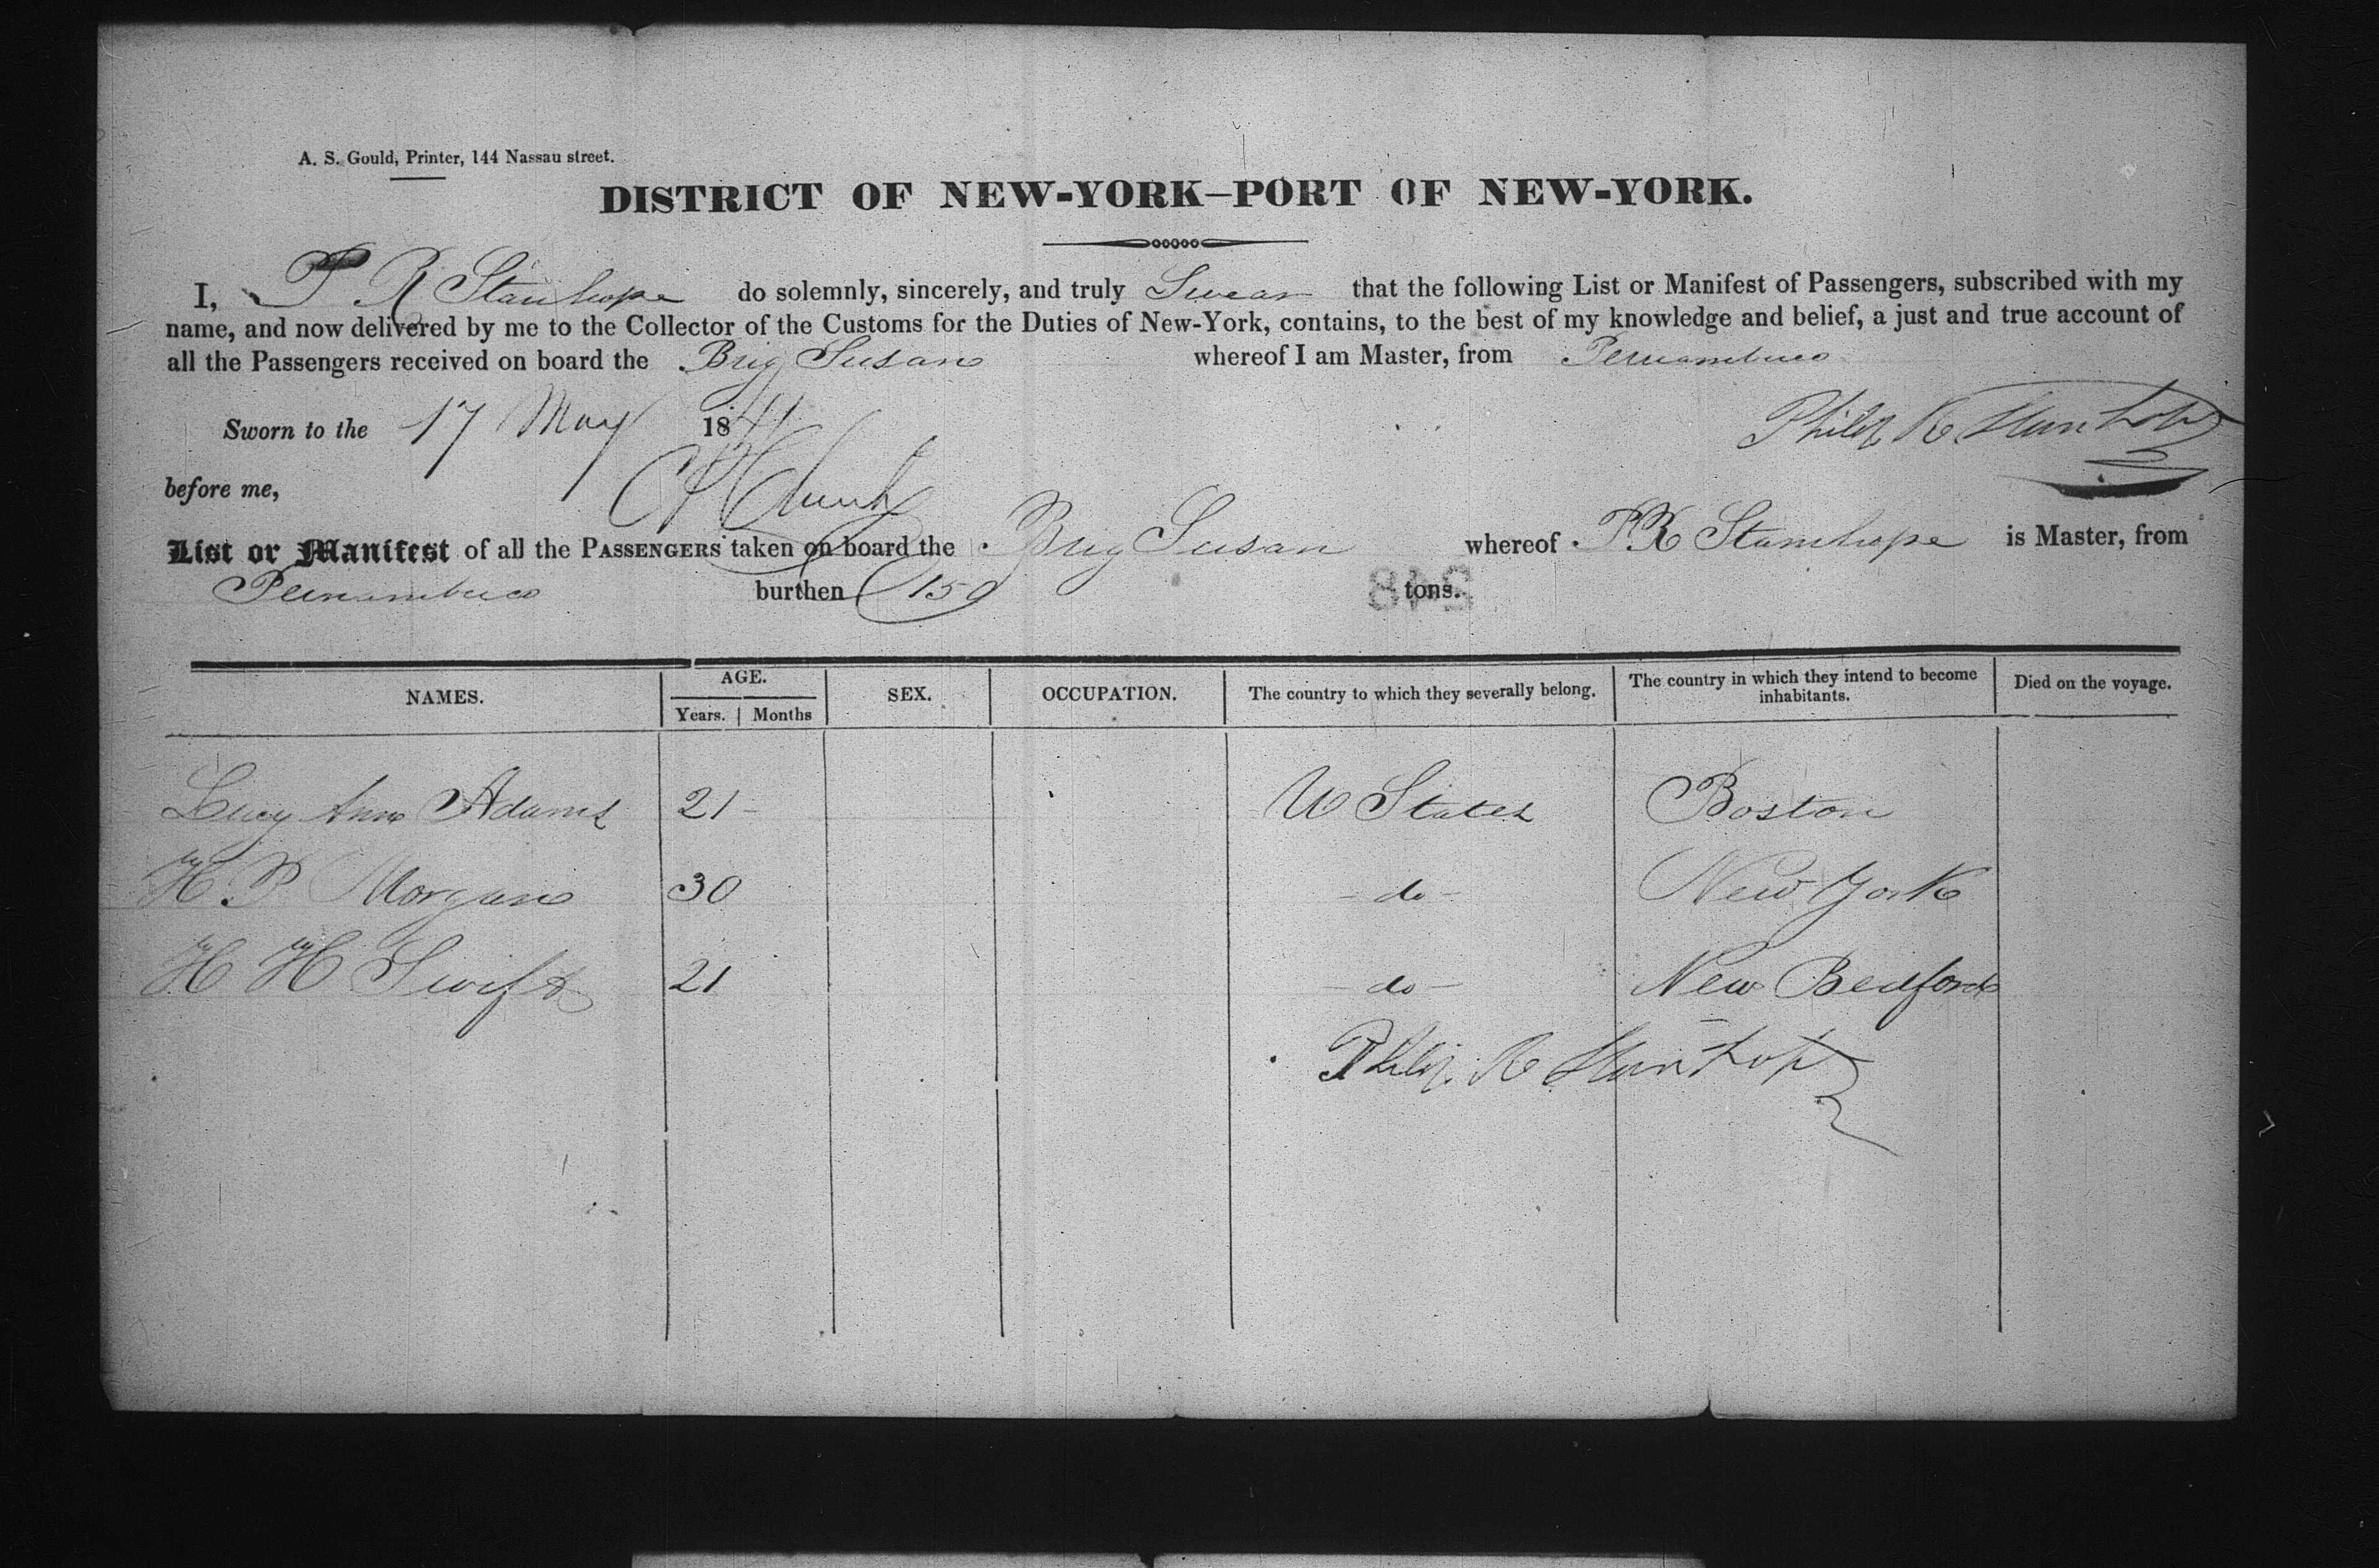 A. S. Gould, Printer, 144 Nassau street.
DISTRICT OF NEW-YORK—PORT OF NEW-YORK.
I, P R Stanhope do solemnly, sincerely, and truly Swear that the following List or Manifest of Passengers, subscribed with my
name, and now delivered by me to the Collector of the Customs for the Duties of New-York, contains, to the best of my knowledge and belief, a just and true account of
all the Passengers received on board the Brig Susan whereof I am Master, from Pernambuco
Sworn to the 17 May 1841 Philip R Stanhope
before me,
List or Manifest of all the PASSENGERS taken on board the Brig Susan whereof P R Stanhope is Master, from
Pernambuco burthen 159 tons.
548
NAMES. AGE. Years. Months SEX. OCCUPATION. The country to which they severally belong. The country in which they intend to become inhabitants. Died on the voyage.
Lucy Ann Adams 21 - U States Boston
H. P. Morgan 30 - do - New York
H H Swift 21 - do - New Bedford
Philip R Stanhope